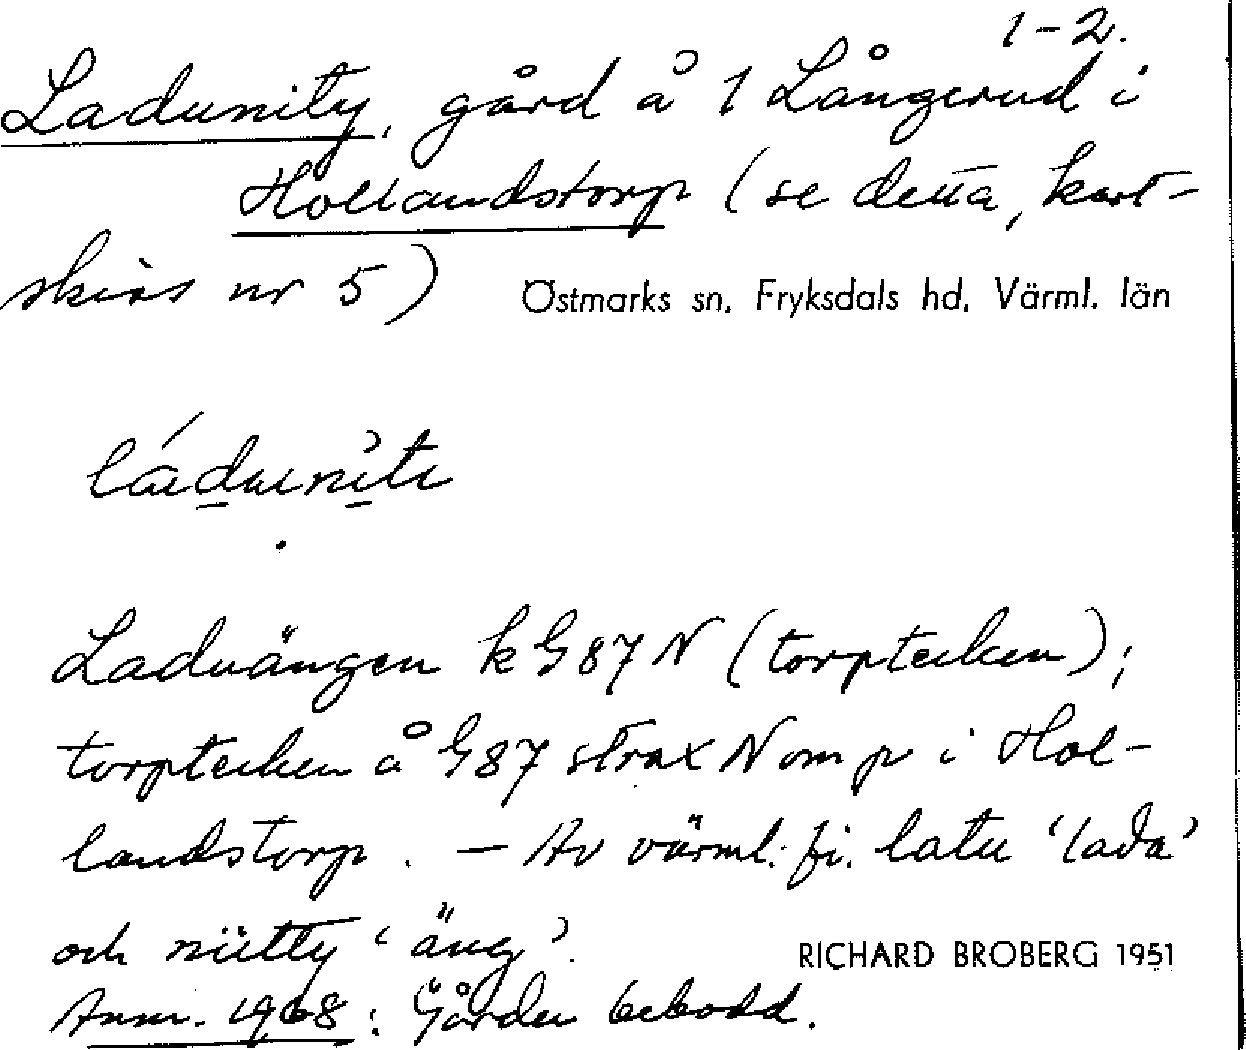 1-2.
Ladunity, gård å 1 Långerud i
Hollandstorp (se detta, kart-
skiss nr 5) Östmarks sn. Fryksdals hd. Värml. län
ládunìti
Laduängen k G 87 N (torptecken);
torptecken å G 87 strax N om p i Hol-
landstorp. - Av värml. fi. latu 'lada'
och niitty 'äng'.
RICHARD BROBERG 1951
Anm. 1968: Gården bebodd.